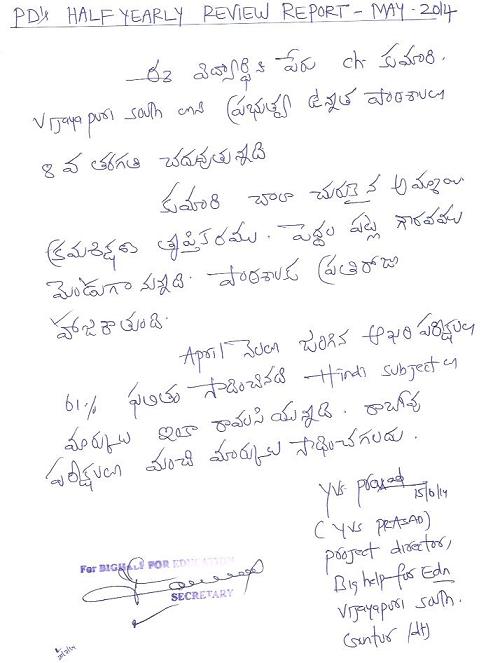 PD's HALF YEARLY REVIEW REPORT - MAY - 2014
ఈ విద్యార్థిని పేరు ch కుమారి.
Vijayapuri South లోని ప్రభుత్వ ఉన్నత పాఠశాలలో
8 వ తరగతి చదువుతున్నది
కుమారి చాలా చురుకైన అమ్మాయి
క్రమశిక్షణ తృప్తికరము. పెద్దల పట్ల గౌరవము
మెండుగా నున్నది. పాఠశాలకు ప్రతిరోజు
హాజరౌతుంది.
April నెలలో జరిగిన ఆఖరి పరీక్షలలో
61% ఫలితం సాధించినది Hindi subject లో
మార్కులు ఇంకా రావలసి యున్నది. రాబోవు
పరీక్షలలో మంచి మార్కులు సాధించగలదు.
YVS Prasad
15/6/14
(YVS PRASAD)
project director,
Big help for Edn
Vijayapuri South.
Guntur (dt)
For BIGHELP FOR EDUCATION
SECRETARY